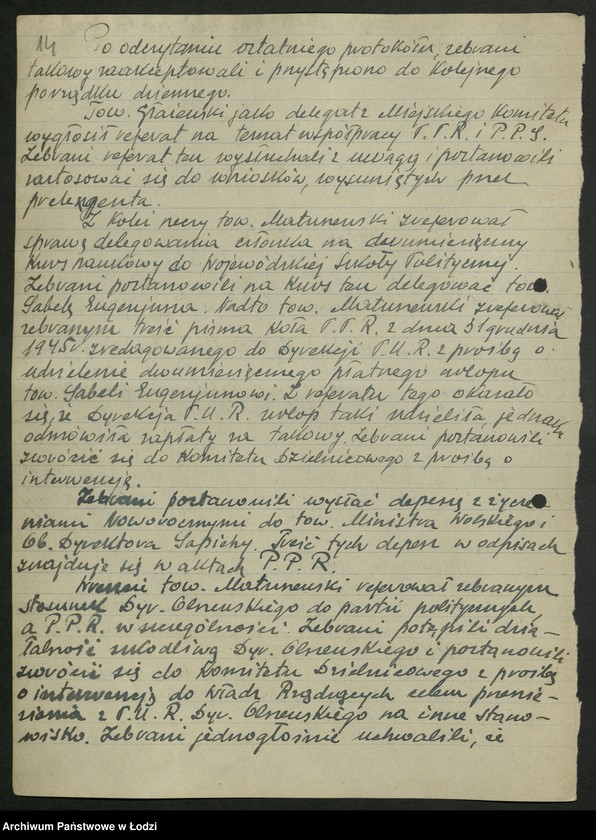 14
Po odczytaniu ostatniego protokółu, zebrani
takowy zaakceptowali i przystąpiono do kolejnego
porządku dziennego.
Tow. jako delegat z Miejskiego Komitetu
wygłosił referat na temat współpracy P.P.R. i P.P.S.
Zebrani referat ten wysłuchali z uwagą i postanowili
zastosować się do wniosków, wysuniętych przez
prelegenta.
Z kolei rzeczy tow. Matuszewski zreferował
sprawę delegowania członka na dwumiesięczny
Kurs naukowy do Wojewódzkiej Szkoły Politycznej.
Zebrani postanowili na Kurs ten delegować tow.
Sabelę Eugenjusza. Nadto tow. Matuszewski zreferował
zebranym treść pisma Koła P.P.R. z dnia 31 grudnia
1945 r. zredagowanego do Dyrekcji P.U.R. z prośbą o
udzielenie dwumiesięcznego płatnego urlopu
tow. Sabeli Eugenjuszowi. Z referatu tego okazało
się, że Dyrekcja P.U.R. urlop taki udzieliła jednak
odmówiła zapłaty na takowy. Zebrani postanowili
zwrócić się do Komitetu Dzielnicowego z prośbą o
interwencję.
Zebrani postanowili wysłać depeszę z życze-
niami Noworocznymi do tow. Ministra Wolskiego i
Ob. Dyrektora Sapiehy. Treść tych depesz w odpisach
znajduje się w aktach P.P.R.
Wreszcie tow. Matuszewski referował zebranym
stosunek Dyr. Olszewskiego do partii politycznych,
a P.P.R. w szczególności. Zebrani potępili dzia-
łalność szkodliwą Dyr. Olszewskiego i postanowili
zwrócić się do Komitetu Dzielnicowego z prośbą
o interwencję do Władz Rządzących celem przenie-
sienia z P.U.R. Dyr. Olszewskiego na inne stano-
wisko. Zebrani jednogłośnie uchwalili, że
Archiwum Państwowe w Łodzi